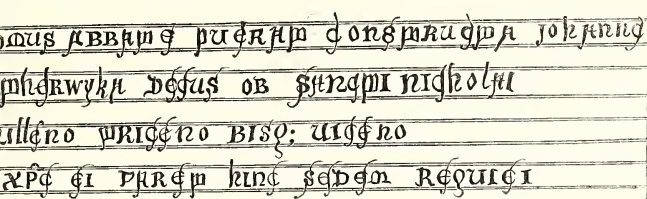 OMUS ABBATE FUERAT CONSTRUCTA JOHANNE
THERWYKA DECUS OB SANCTI NICHOLAI
ILLENO TRICENO BISQ; UICENO
XP̃E EI PARET HINC SEDEM REQUIEI